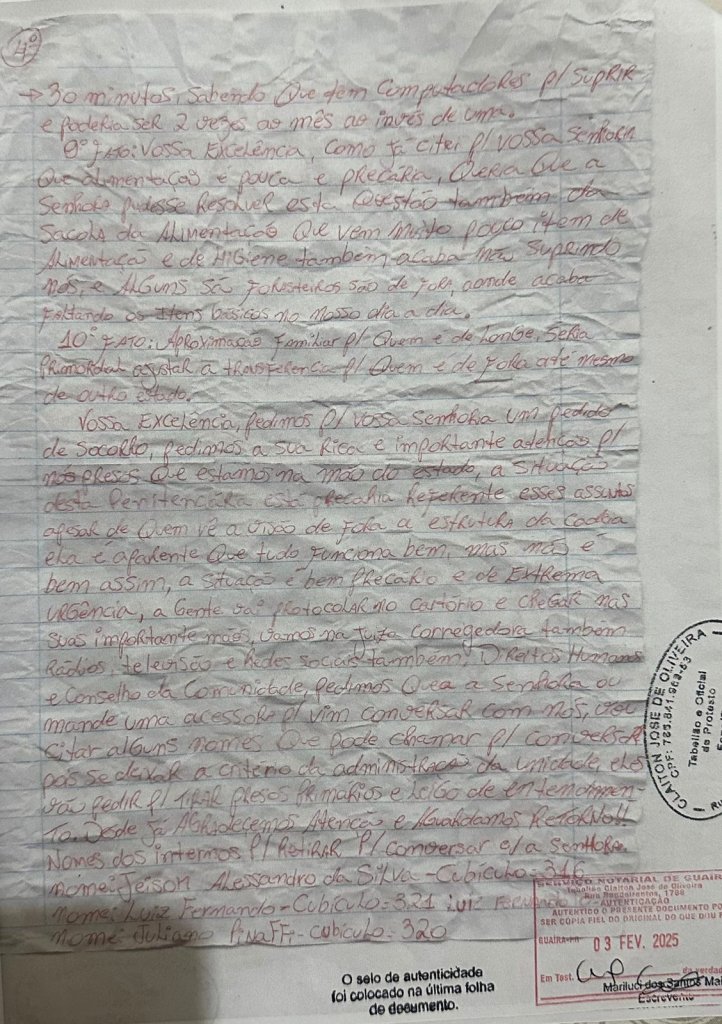 4º
→ 30 minutos, sabendo Que tem Computadores p/ SupRiR
e poderia ser 2 vezes ao mês ao invés de uma.
9º FATO: Vossa Excelência, Como já citei p/ vossa senhoria
Que alimentação é pouca e precária, Queria Que a
Senhora pudesse Resolver esta Questão também da
Sacola da Alimentação Que vem muito pouco item de
Alimentação e de Higiene também acaba não suprindo
nós, e Alguns são Forasteiros são de fora, aonde acaba
Faltando os Itens básicos no nosso dia a dia.
10º FATO: Aproximação Familiar p/ Quem é de Longe, seria
Primordial ajustar a transferencia p/ Quem é de Fora até mesmo
de outro estado.
Vossa Excelência, pedimos p/ vossa senhoria um pedido
de Socorro, pedimos a sua Rica e importante atenção p/
nós presos Que estamos na mão do estado, a Situação
desta Penitenciára está precaria Referente esses assuntos
apesar de Quem vê a visão de fora a estrutura da cadeia
ela é aparente Que tudo Funciona bem, mas não é
bem assim, a situação é bem precário e de Extrema
URGência, a Gente vai protocolar no cartório e chegar nas
suas importante mãos, vamos na juíza corregedora também
Rádios, televisão e Redes sociais também, Direitos Humanos
e Conselho da Comunidade, pedimos Que a Senhora ou
mande uma acessora p/ vim conversar com nós, vou
citar alguns nomes Que pode chamar p/ conversar
pois se deixar a criterio da administração da unidade eles
vão pedir p/ TIRAR presos primarios e leigo de entendimen-
to. Desde já Agradecemos Atenção e Aguardamos Retorno!!
Nomes dos internos p/ Retirar p/ conversar c/a senhora.
nome: Jeison Alessandro da Silva - Cubículo: 316
nome: Luiz Fernando - Cubículo: 321 Luiz Fernando
nome: Juliano Pinaffi - cubículo: 320
CLAITON JOSE DE OLIVEIRA
Tabelião e Oficial
de Protesto
SERVIÇO NOTARIAL DE GUAIRA
Tabelião Claiton José de Oliveira
AUTENTICAÇÃO
AUTENTICO O PRESENTE DOCUMENTO PO
SER COPIA FIEL DO ORIGINAL DO QUE DOU F
GUAIRA-PR 03 FEV. 2025
Em Test. da verdad
Mariluci dos Santos Mai
Escrevente
O selo de autenticidade
foi colocado na última folha
de documento.